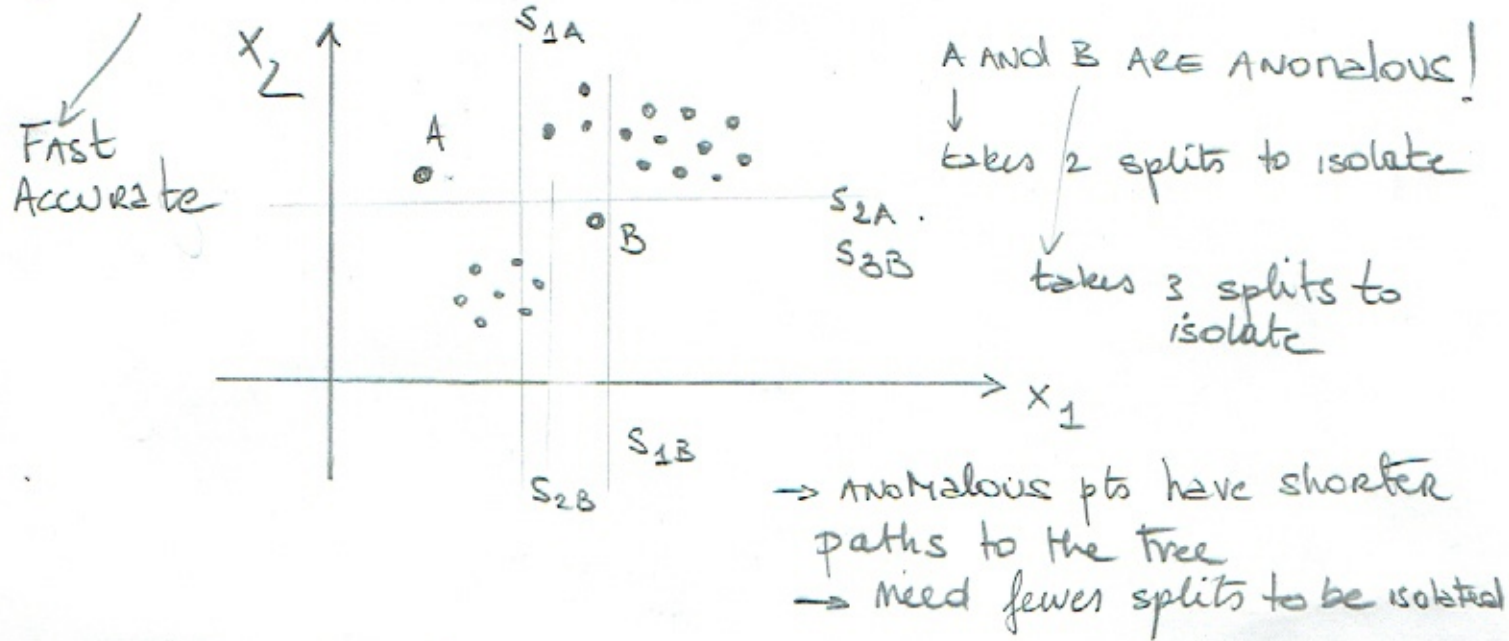 Fast
Accurate
X2
S1A
A
B
S2A .
S3B
X1
S1B
S2B
A AND B ARE ANOMALOUS!
takes 2 splits to isolate
takes 3 splits to
isolate
→ ANOMALOUS pts have shorter
paths to the tree
→ need fewer splits to be isolated